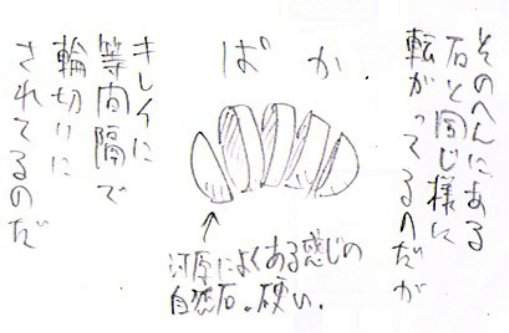 そのへんにある
石と同じ様に
転がってるのだが
ぱか.
キレイに
等間隔で
輪切りに
されてるのだ
河原によくある感じの
自然石。硬い.